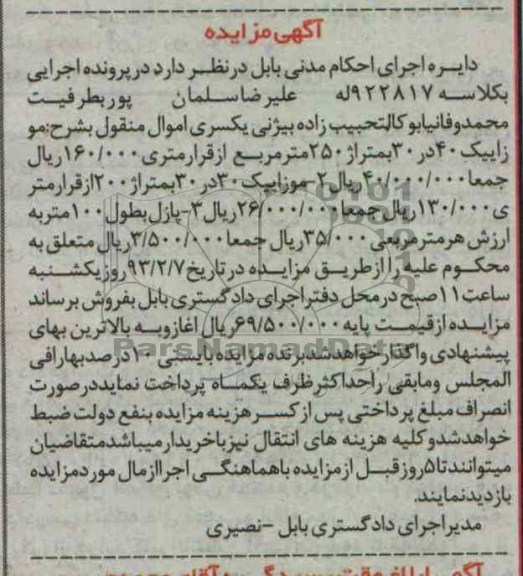 آگهی مزایده
دایره اجرای احکام مدنی بابل در نظر دارد در پرونده اجرایی
بکلاسه ۹۲۲۸۱۷له علیرضا سلمان پور بطرفیت
محمدوفانیا بوکالتحبیب زاده بیژنی یکسری اموال منقول بشرح:مو
زاییک ۴۰در ۳۰بمتراژ ۲۵۰مترمربع ازقرارمتری ۱۶۰/۰۰۰ریال
جمعا ۴۰/۰۰۰/۰۰۰ریال ۲-موزاییک ۳۰در ۳۰بمتراژ ۲۰۰ازقرارمتر
ی ۱۳۰/۰۰۰ریال جمعا ۲۶/۰۰۰/۰۰۰ریال ۳-پازل بطول ۱۰۰متر به
ارزش هر متر مربعی ۳۵/۰۰۰ریال جمعا ۳/۵۰۰/۰۰۰ریال متعلق به
محکوم علیه را از طریق مزایده در تاریخ ۹۳/۲/۷روز یکشنبه
ساعت ۱۱صبح در محل دفتر اجرای دادگستری بابل بفروش برساند
مزایده از قیمت پایه ۶۹/۵۰۰/۰۰۰ریال اغاز و به بالاترین بهای
پیشنهادی واگذار خواهدشد برنده مزایده بایستی ۱۰درصد بها را فی
المجلس و مابقی را حداکثر ظرف یکماه پرداخت نماید در صورت
انصراف مبلغ پرداختی پس از کسر هزینه مزایده بنفع دولت ضبط
خواهدشد و کلیه هزینه های انتقال نیز با خریدار میباشد متقاضیان
میتوانند تا ۵روز قبل از مزایده با هماهنگی اجرا از مال مورد مزایده
بازدید نمایند.
مدیر اجرای دادگستری بابل -نصیری
ParsNamadData